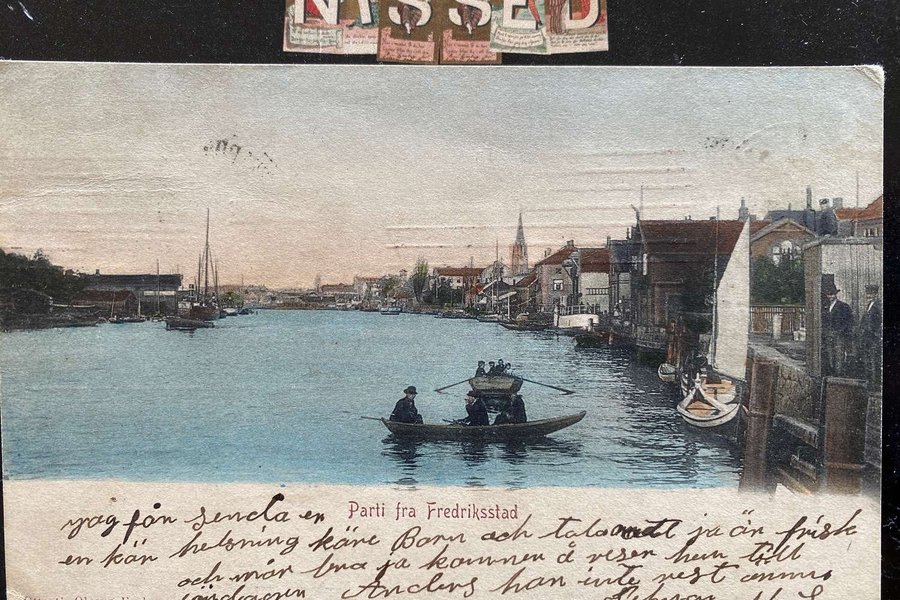 NISSED
Parti fra Fredriksstad
jag fån senda er
en kär helsning käre Barn och tala att ja är frisk
och mår bra ja kommer å reser hem till
söndagen Anders han inte rest ännu